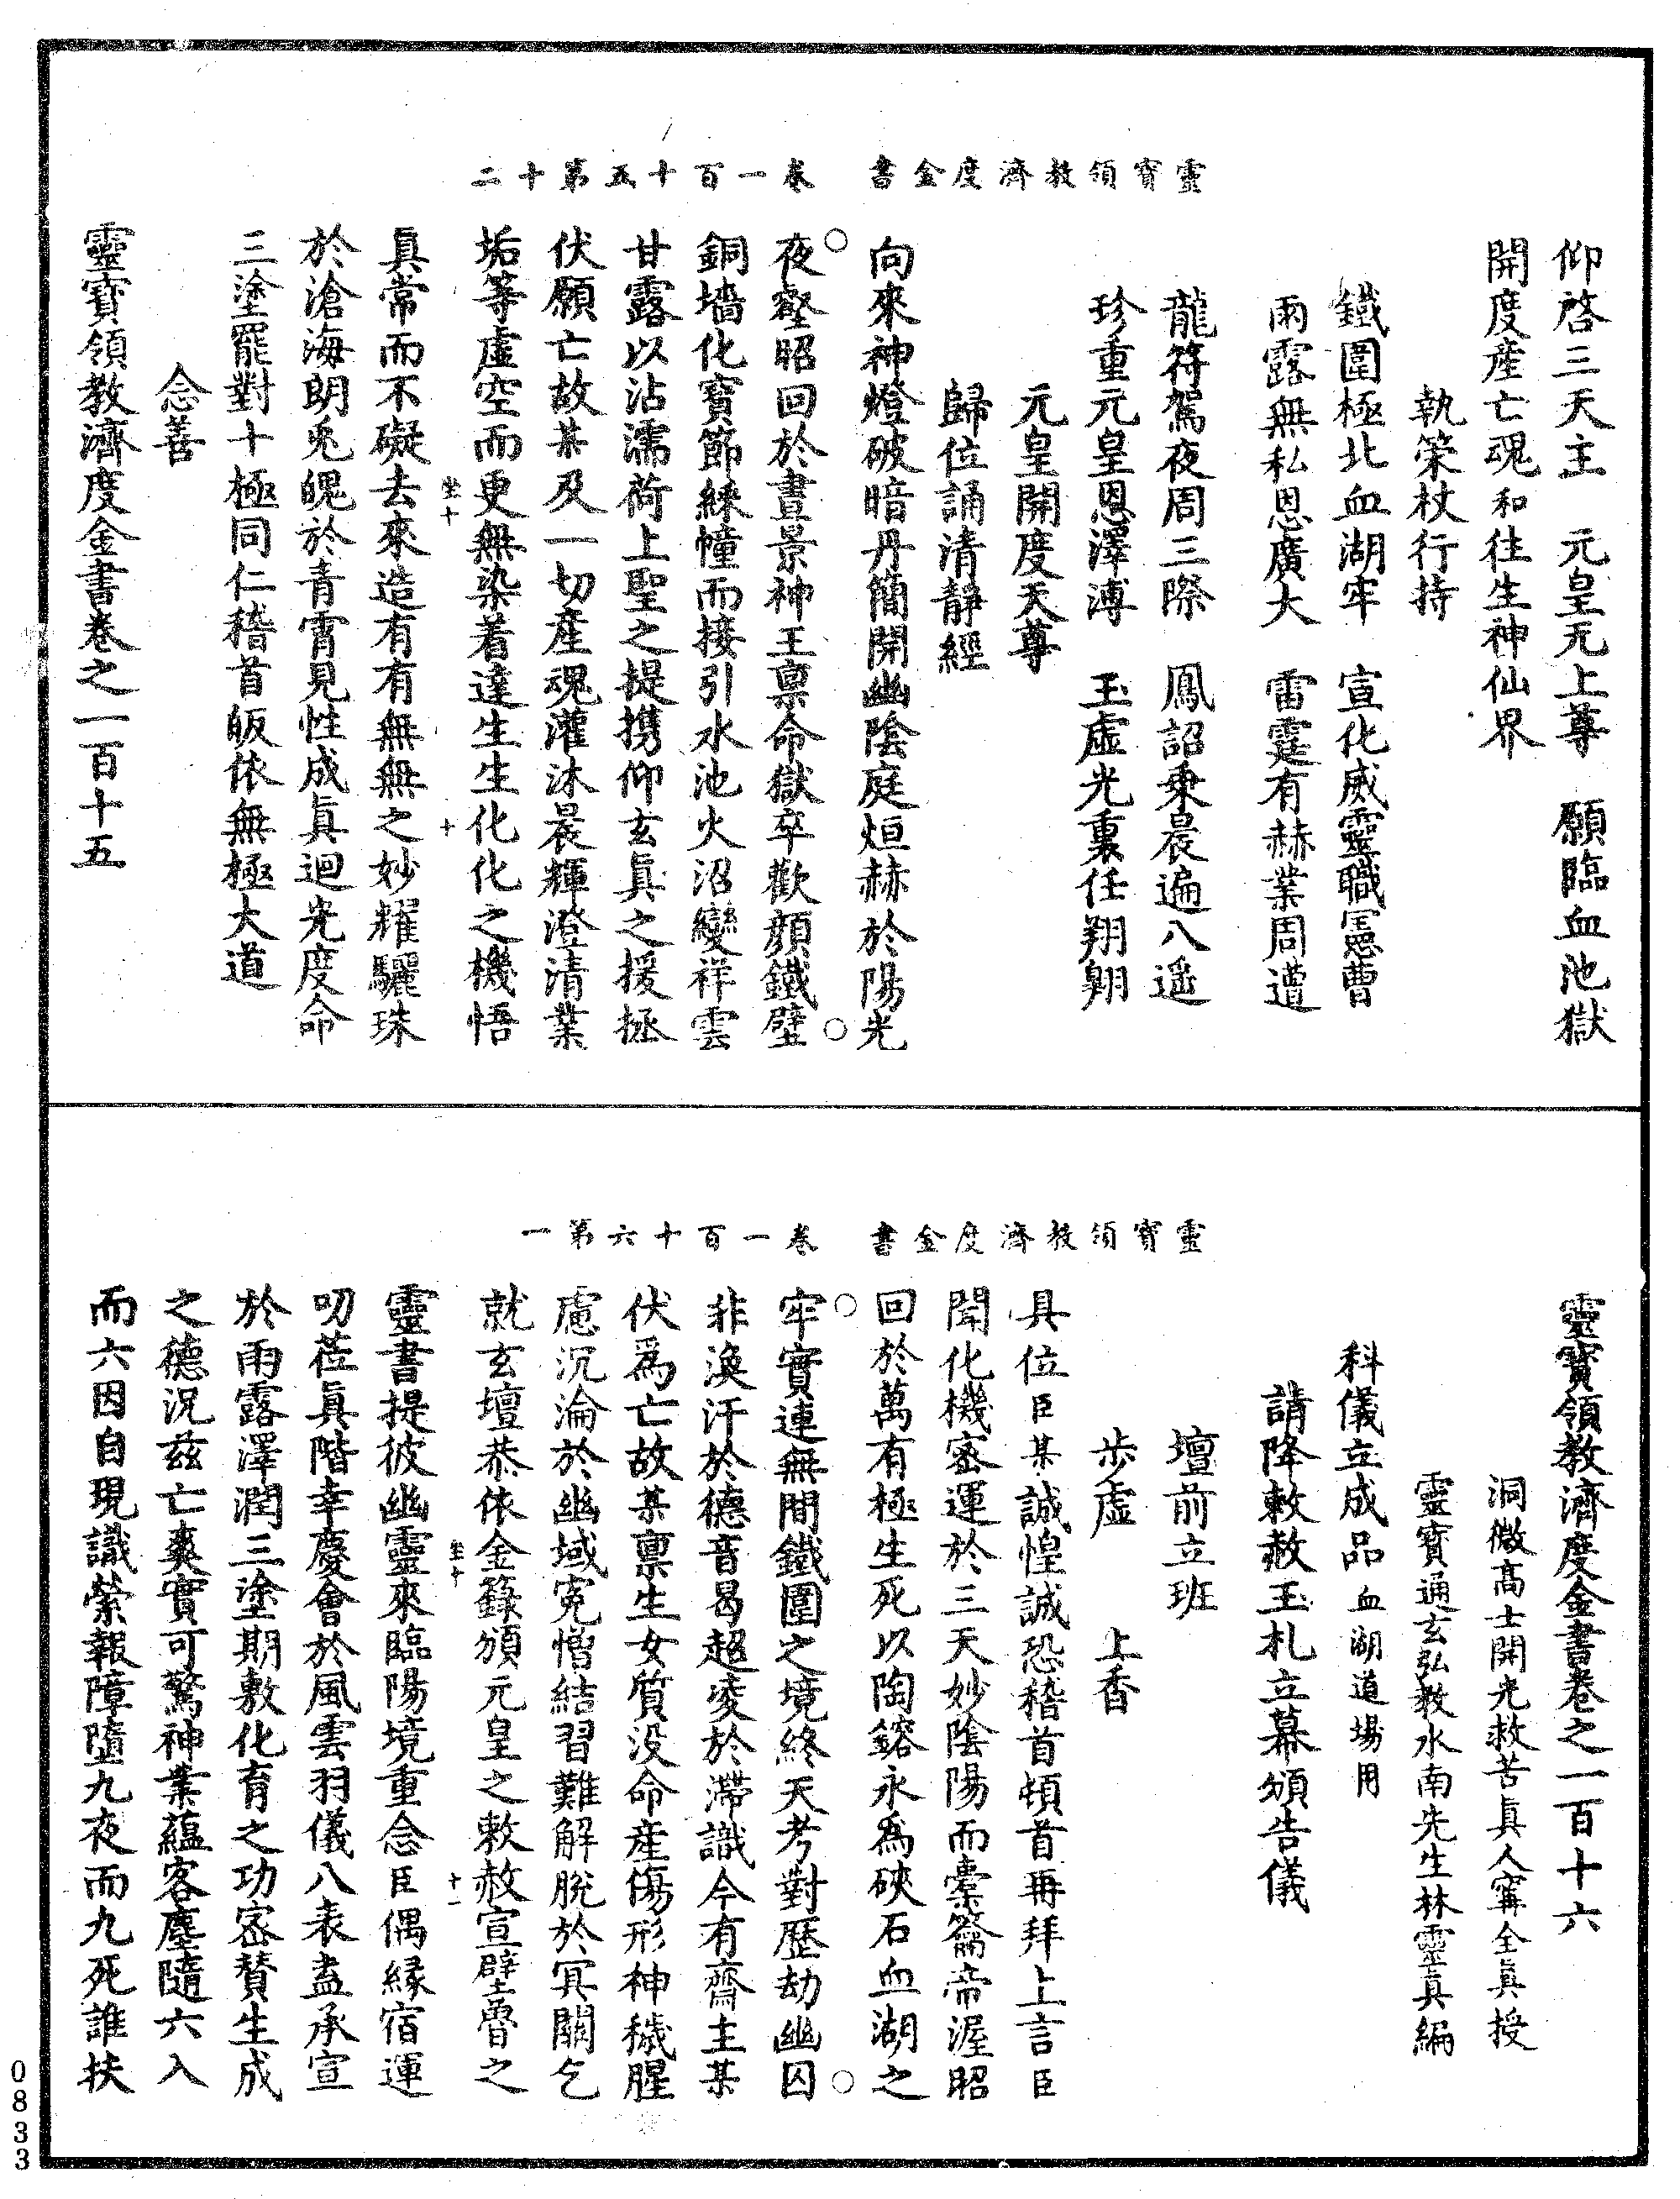 靈寶領教濟度金書　卷一百十五第十二
仰啓三天主　元皇无上尊　願臨血池獄
開度産亡魂　和往生神仙界
執策杖行持
鐵圍極北血湖牢　宣化威靈職憲曹
雨露無私恩廣大　雷霆有赫業周遭
龍符駕夜周三際　鳳詔乗晨遍八遥
珍重元皇恩澤溥　玉虛光裏任翔翺
元皇開度天尊
歸位誦清靜經
向來神燈破暗丹簡開幽陰庭烜赫於陽光
夜壑昭回於晝景神王禀命獄卒歡顔鐵壁
銅墻化寶節綵幢而接引水池火沼變祥雲
甘露以沾濡荷上聖之提携仰玄眞之援拯
伏願亡故某及一切産魂灌沐晨輝澄清業
垢等虛空而更無染着達生生化化之機悟
坐十　十
眞常而不礙去來造有有無無之妙耀驪珠
於滄海朗兎魄於青霄見性成眞迴光度命
三塗罷對十極同仁稽首皈依無極大道
念善
靈寶領教濟度金書卷之一百十五
靈寶領教濟度金書　卷一百十六第一
靈寶領教濟度金書卷之一百十六
洞微高士開光救苦眞人甯全眞授
靈寶通玄弘教水南先生林靈眞編
科儀立成品　血湖道場用
請降敕赦玉札立幕頒告儀
壇前立班
歩虛　上香
具位臣某誠惶誠恐稽首頓首再拜上言臣
聞化機密運於三天妙陰陽而橐籥帝渥昭
回於萬有極生死以陶鎔永爲硤石血湖之
牢實連無間鐵圍之境終天考對歷劫幽囚
非渙汗於德音曷超凌於滯識今有齋主某
伏爲亡故某禀生女質没命産傷形神穢腥
慮沉淪於幽域寃憎結習難解脫於冥關乞
就玄壇恭依金籙頒元皇之敕赦宣壁魯之
坐十　十一
靈書提彼幽靈來臨陽境重念臣偶緣宿運
叨莅眞階幸慶會於風雲羽儀八表盍承宣
於雨露澤潤三塗期敷化育之功密賛生成
之德况兹亡爽實可驚神業蘊客塵隨六入
而六因自現識縈報障墮九夜而九死誰扶
0833